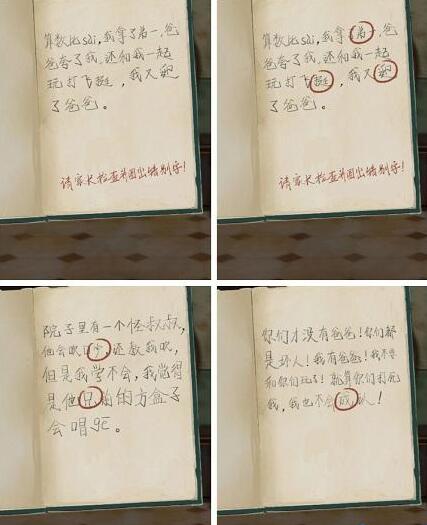 算数比sài,我拿了弟一,爸
爸夸了我,还和我一起
玩打飞挺,我又
了爸爸。
请家长检查并圈出错别字!
算数比sài,我拿了弟一,爸
爸夸了我,还和我一起
玩打飞挺,我又
了爸爸。
请家长检查并圈出错别字!
院子里有一个怪叔叔,
他会吹口,还教我吹,
但是我学不会,我觉得
是他兄前的方盒子
会唱gē。
你们才没有爸爸!你们都
是坏人!我有爸爸!我不要
和你们玩了!就算你们打死
我,我也不会成认!